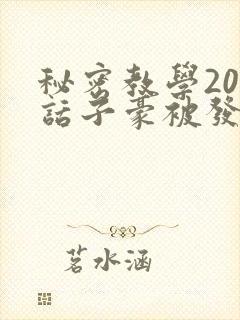 秘密教學20
話子豪被發
茗水涵